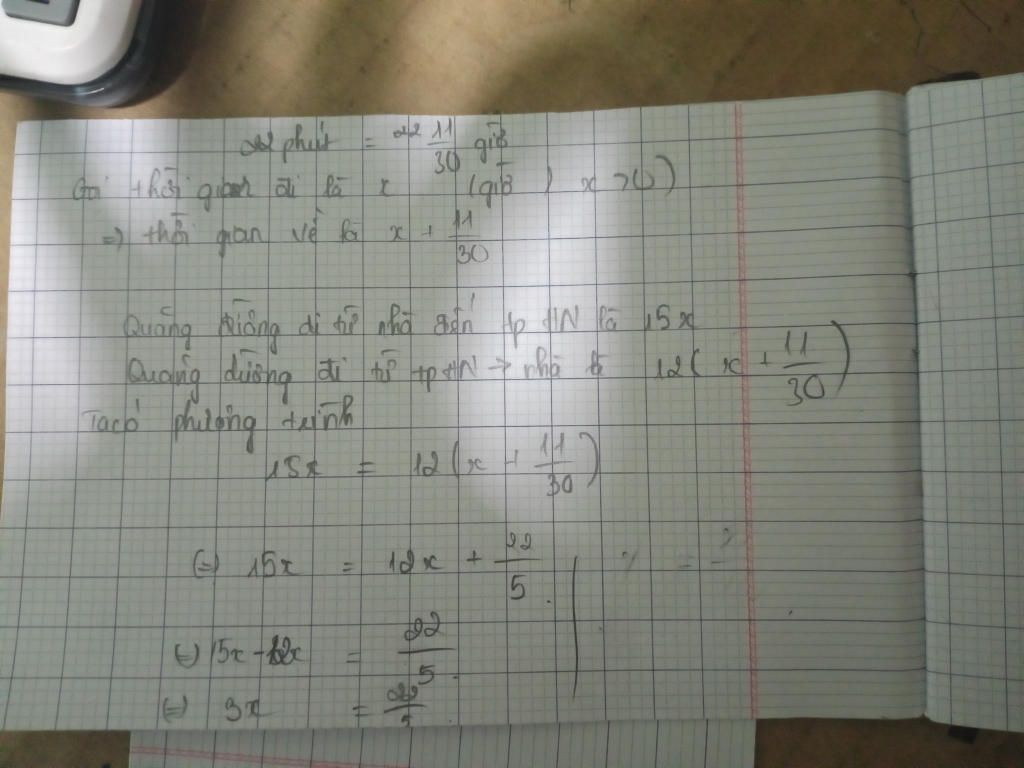 22 phút = 22 11/30 giờ
Gọi thời gian đi là x (giờ) x > 0)
=> thời gian về là x + 11/30
Quãng đường đi từ nhà đến tp HN là 15x
Quãng đường đi từ tp HN → nhà là 12(x + 11/30)
Ta có phương trình
15x = 12(x + 11/30)
(=) 15x = 12x + 22/5
(=) 15x - 12x = 22/5
(=) 3x = 22/5